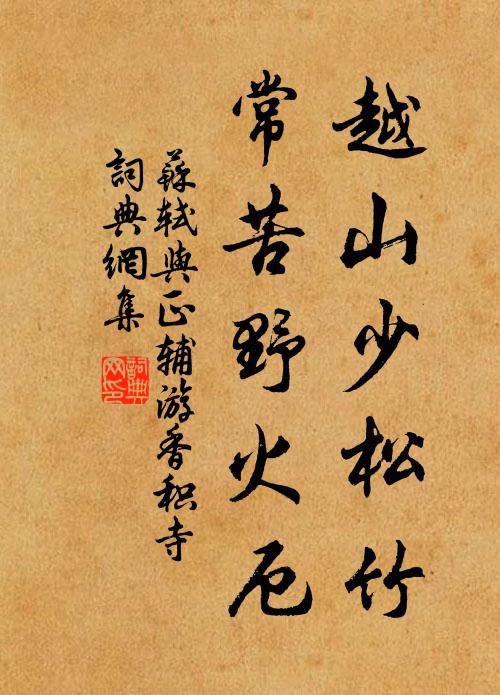 越山少松竹
常苦野火厄
蘇軾與正輔游香积寺
詞典網集
詞典網印